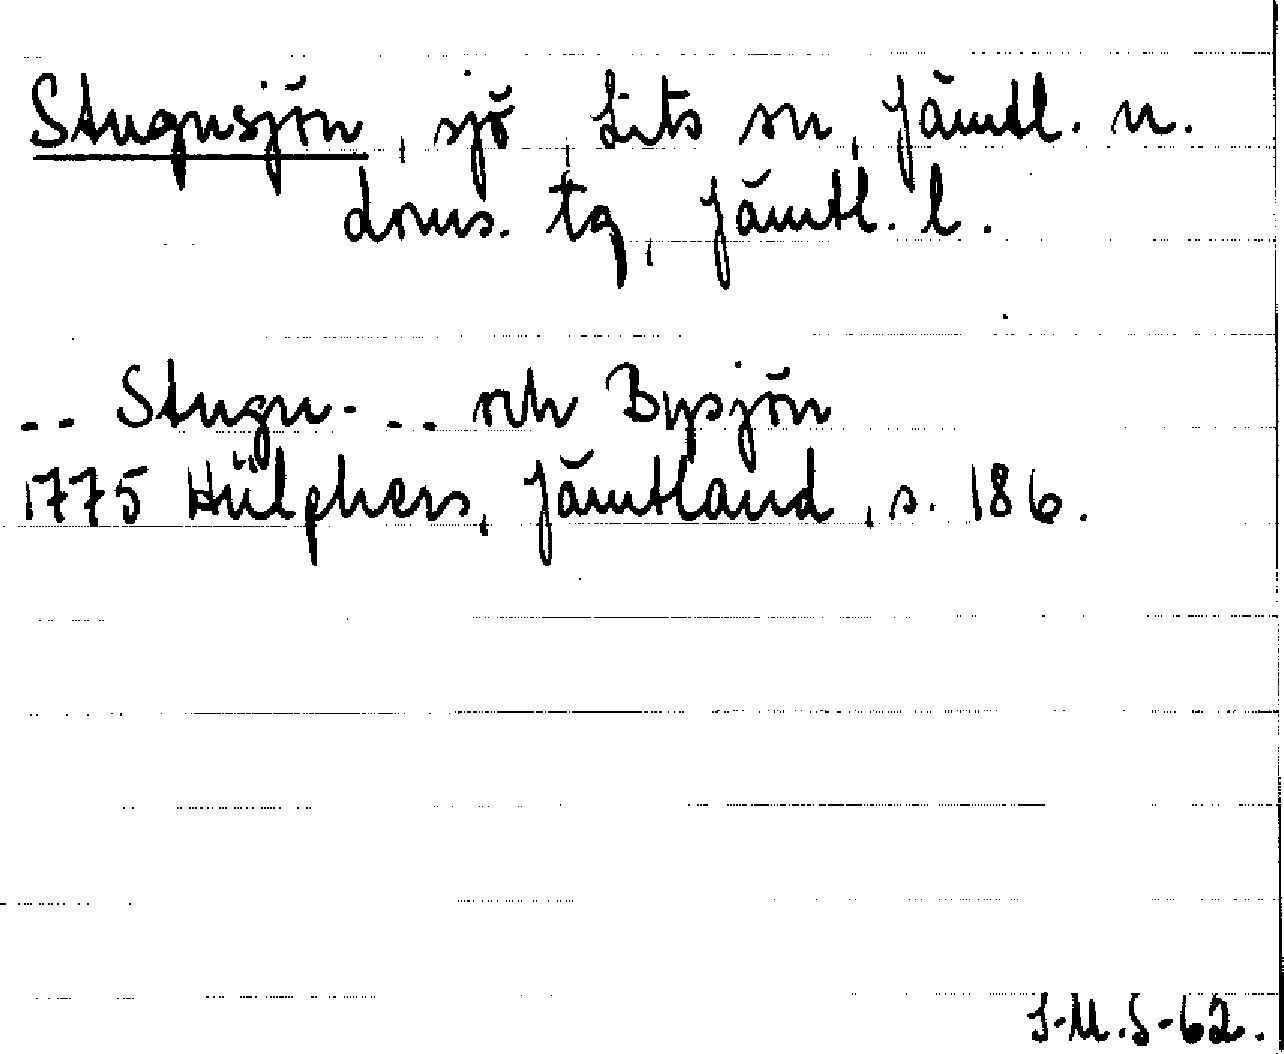 Stugusjön, sjö, Lits sn, Jämtl. n.
doms. tg, Jämtl. l.
-- Stugu- -- och Bysjön
1775 Hülphers, Jämtland, s. 186.
J-M.S-62.